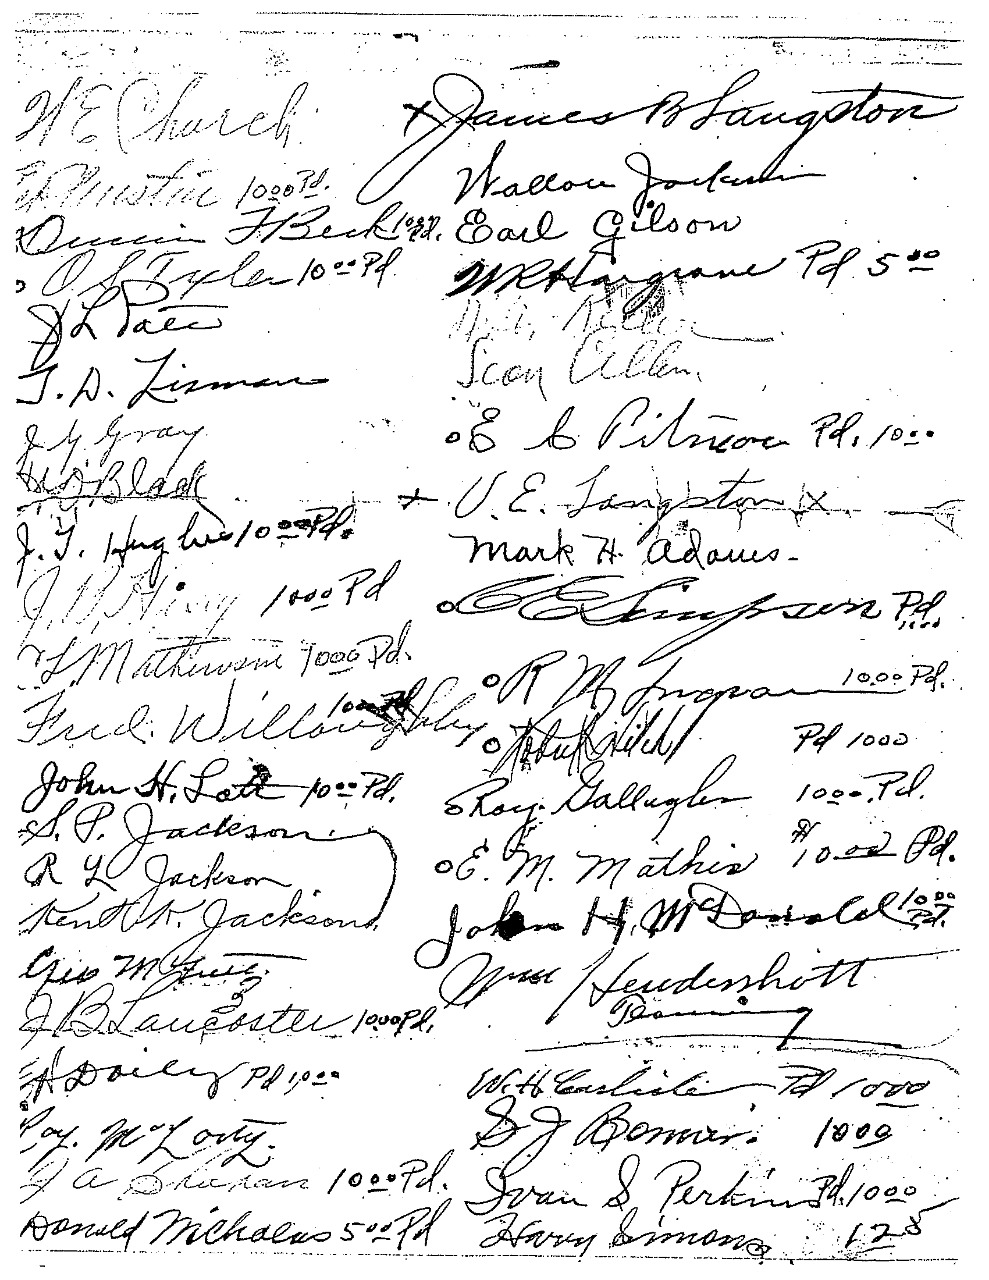 W E Church
Austin 10 00 Pd.
F Beck 10 00 Pd.
O L Tyler 10 00 Pd
J L Pate
T. D. Lisman
J G Gray
H D Black
J. T. Hughes 10 00 Pd.
J. V. 10 00 Pd
L. Mathewson 10 00 Pd.
Fred. Willoughby 10 00 Pd
John H. Lott 10 00 Pd.
S. P. Jackson
R L Jackson
Kent K. Jackson
Geo M
J B Lancaster 10 00 Pd.
Doily Pd 10 00
Roy. McLorty.
J A 10 00 Pd.
Donald Nicholas 5 00 Pd
x James B Langston
Wallace Jackson
Earl Gilson
W R Hargrave Pd 5 00
Allen
E C Pitmon Pd. 10 00
x V. E. Langston x
Mark H. Adams -
C E Simpson Pd
R M Ingram 10.00 Pd.
Pd 10 00
Roy Gallagher 10 00 Pd.
E. M. Mathis $10.00 Pd.
John H. McDonald 10 00 Pd.
Wm Hendershott
W. H Carlisle Pd 10 00
S J Bomar. 10 00
Ivan S Perkins Pd. 10 00
Harry Simons 12 5